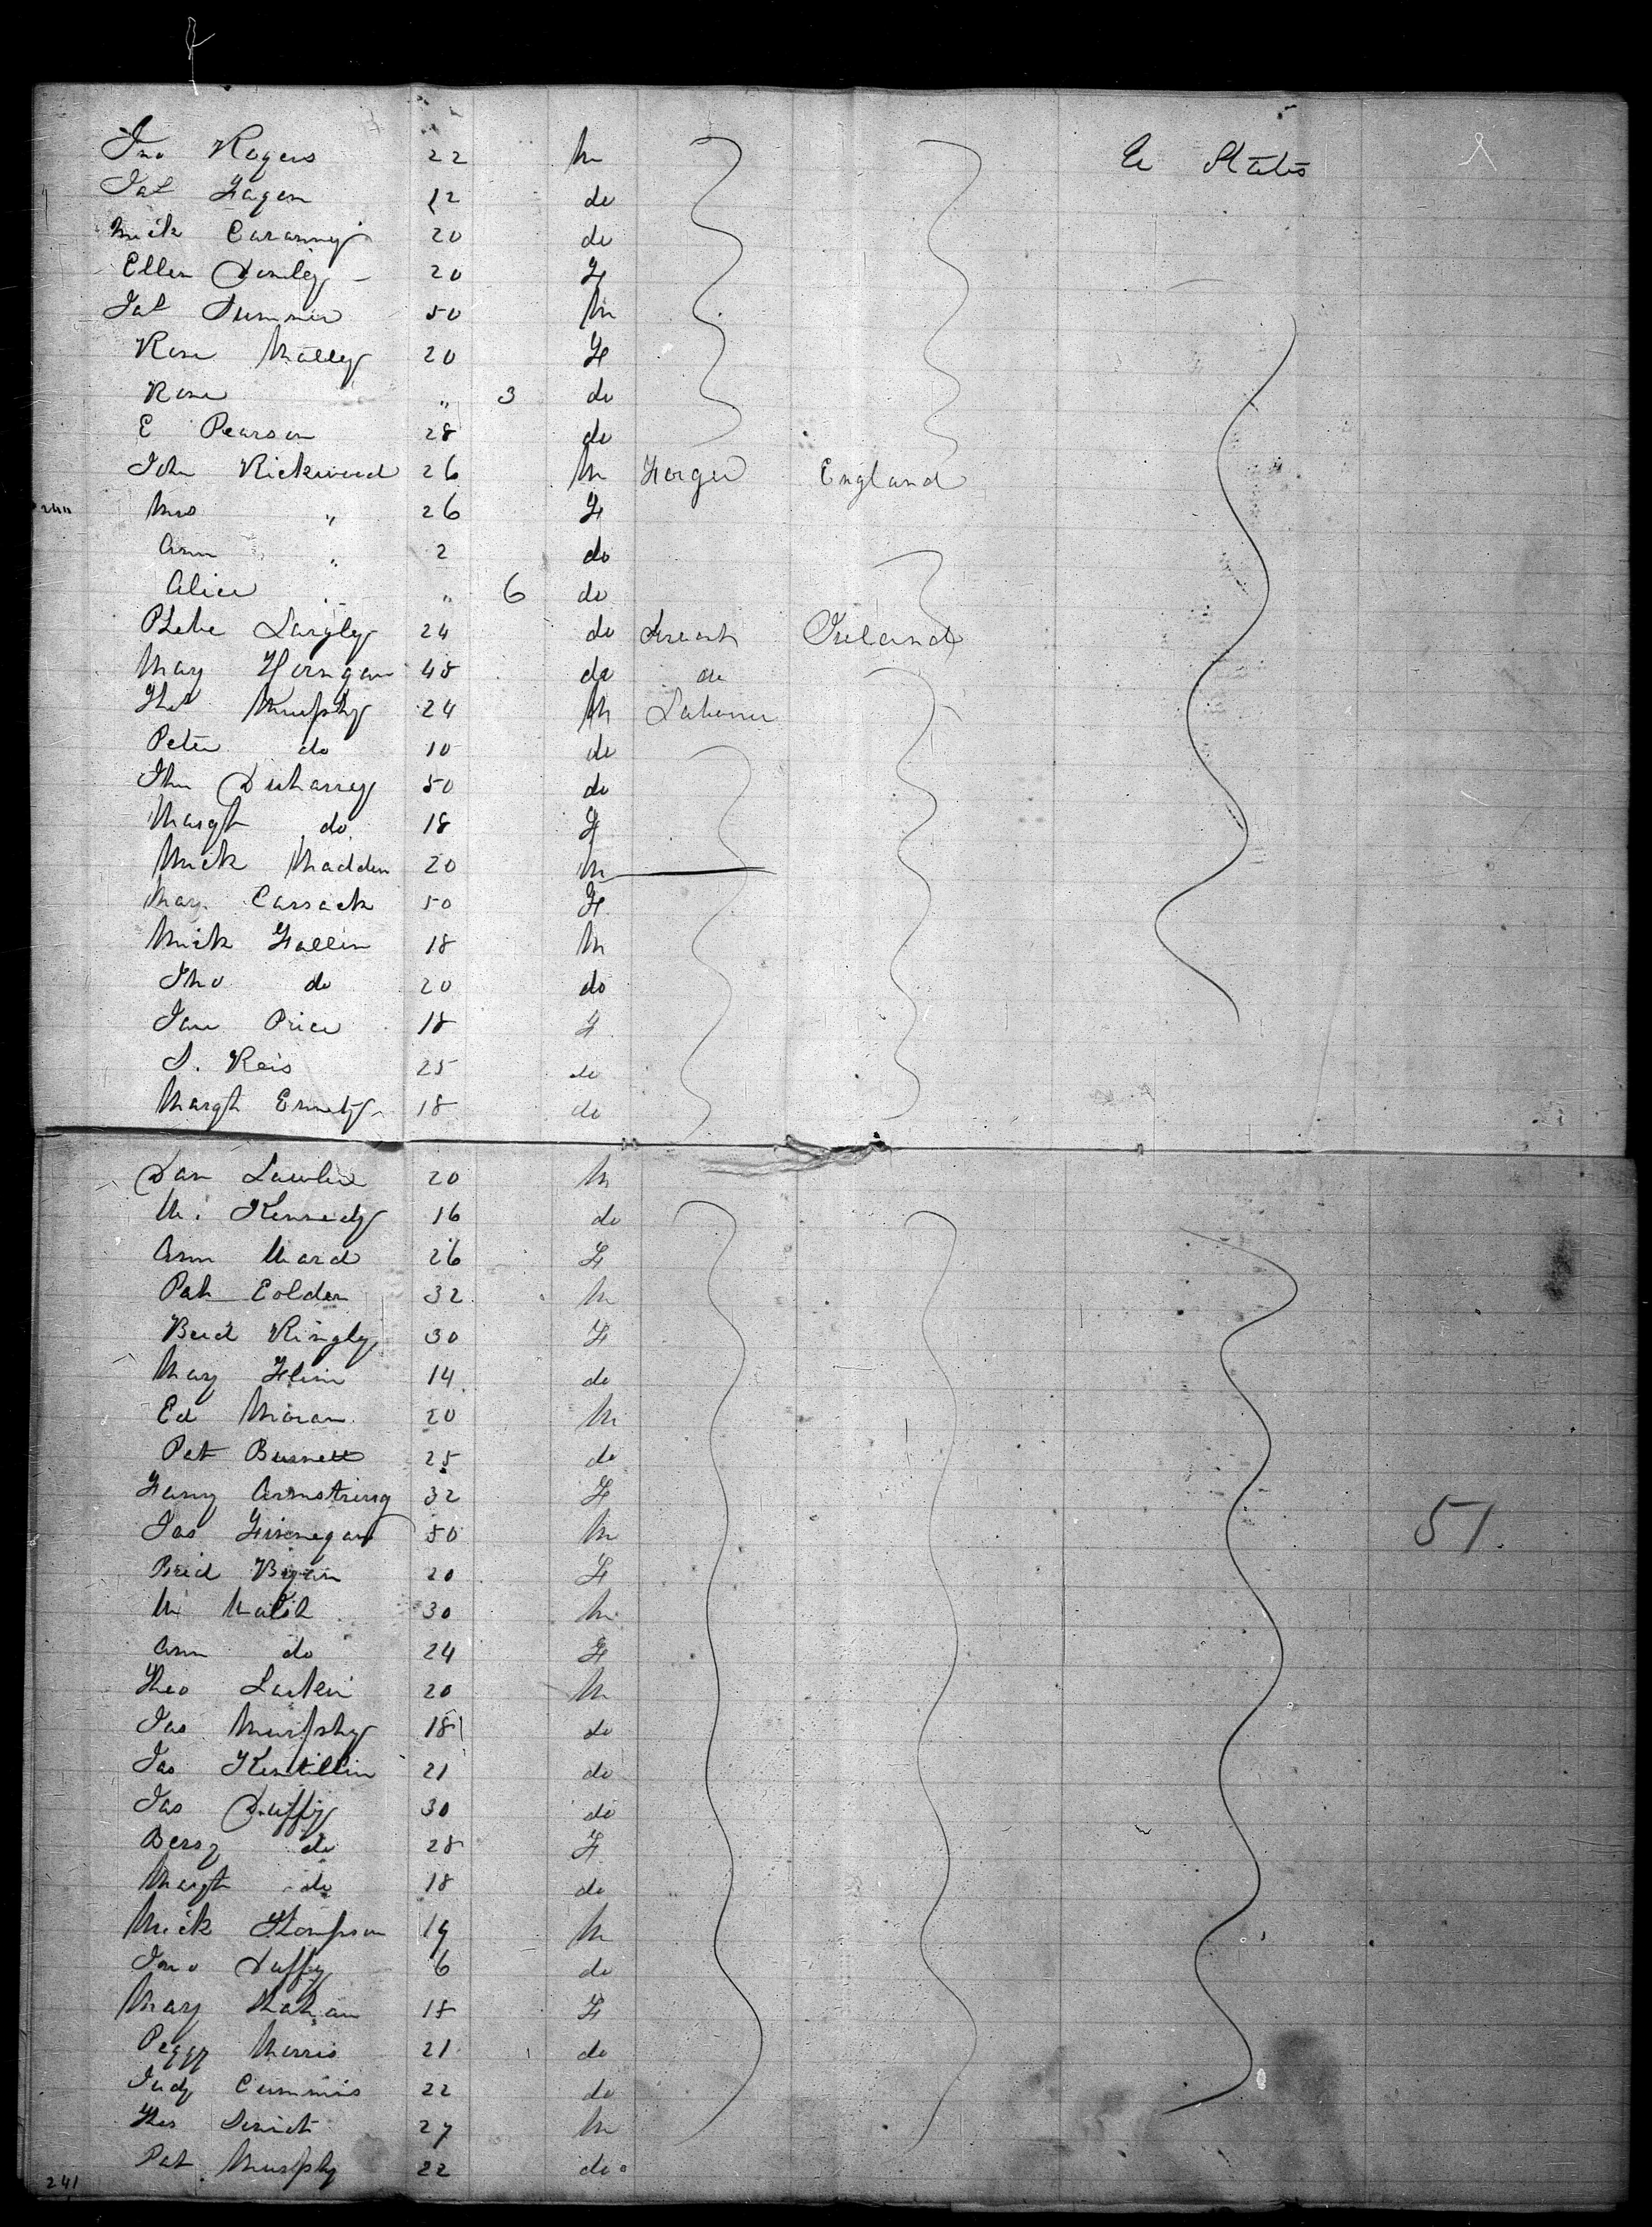 Jno Rogers 22 M U States
Pat Fagen 12 do
Mick 20 do
Ellen 20 F
Pat 50 M
Rose Mally 20 F
Rose " 3 do
E Pearson 28 do
John Rickwood 26 M Forger England
Mrs " 26 F
Ann " 2 do
Alice " " 6 do
Phebe Langly 24 do Servant Ireland
Mary 48 do do
Thos Murphy 24 M Laborer
Peter do 10 do
Jno 50 do
Margt do 18 F
Mick Madden 20 M
Mary Cassack 50 F
Mick Fallin 18 M
Jno do 20 do
Jane Price 18 F
S. Reis 25 do
Margt 18 do
Dan Lawler 20 M
M. Kennedy 16 do
Ann Ward 26 F
Pat Colder 32 M
Brid Kingly 30 F
Mary Flinn 14 do
Ed Moran 20 M
Pat Burnett 25 do
Fany Armstrong 32 F
Jas Finnegan 50 M
Brid Byrin 20 F
M Walsh 30 M
Ann do 24 F
Theo Larkin 20 M
Jas Murphy 18 do
Jas Kentillin 21 do
Jas Duffy 30 do
Bessy do 28 F
Margt do 18 do
Mick Thompson 19 M
Jno Duffy 6 do
Mary Mahan 18 F
Peggy Morris 21 do
Judy Cummis 22 do
Thos 27 M
Pat Murphy 22 do
51
241